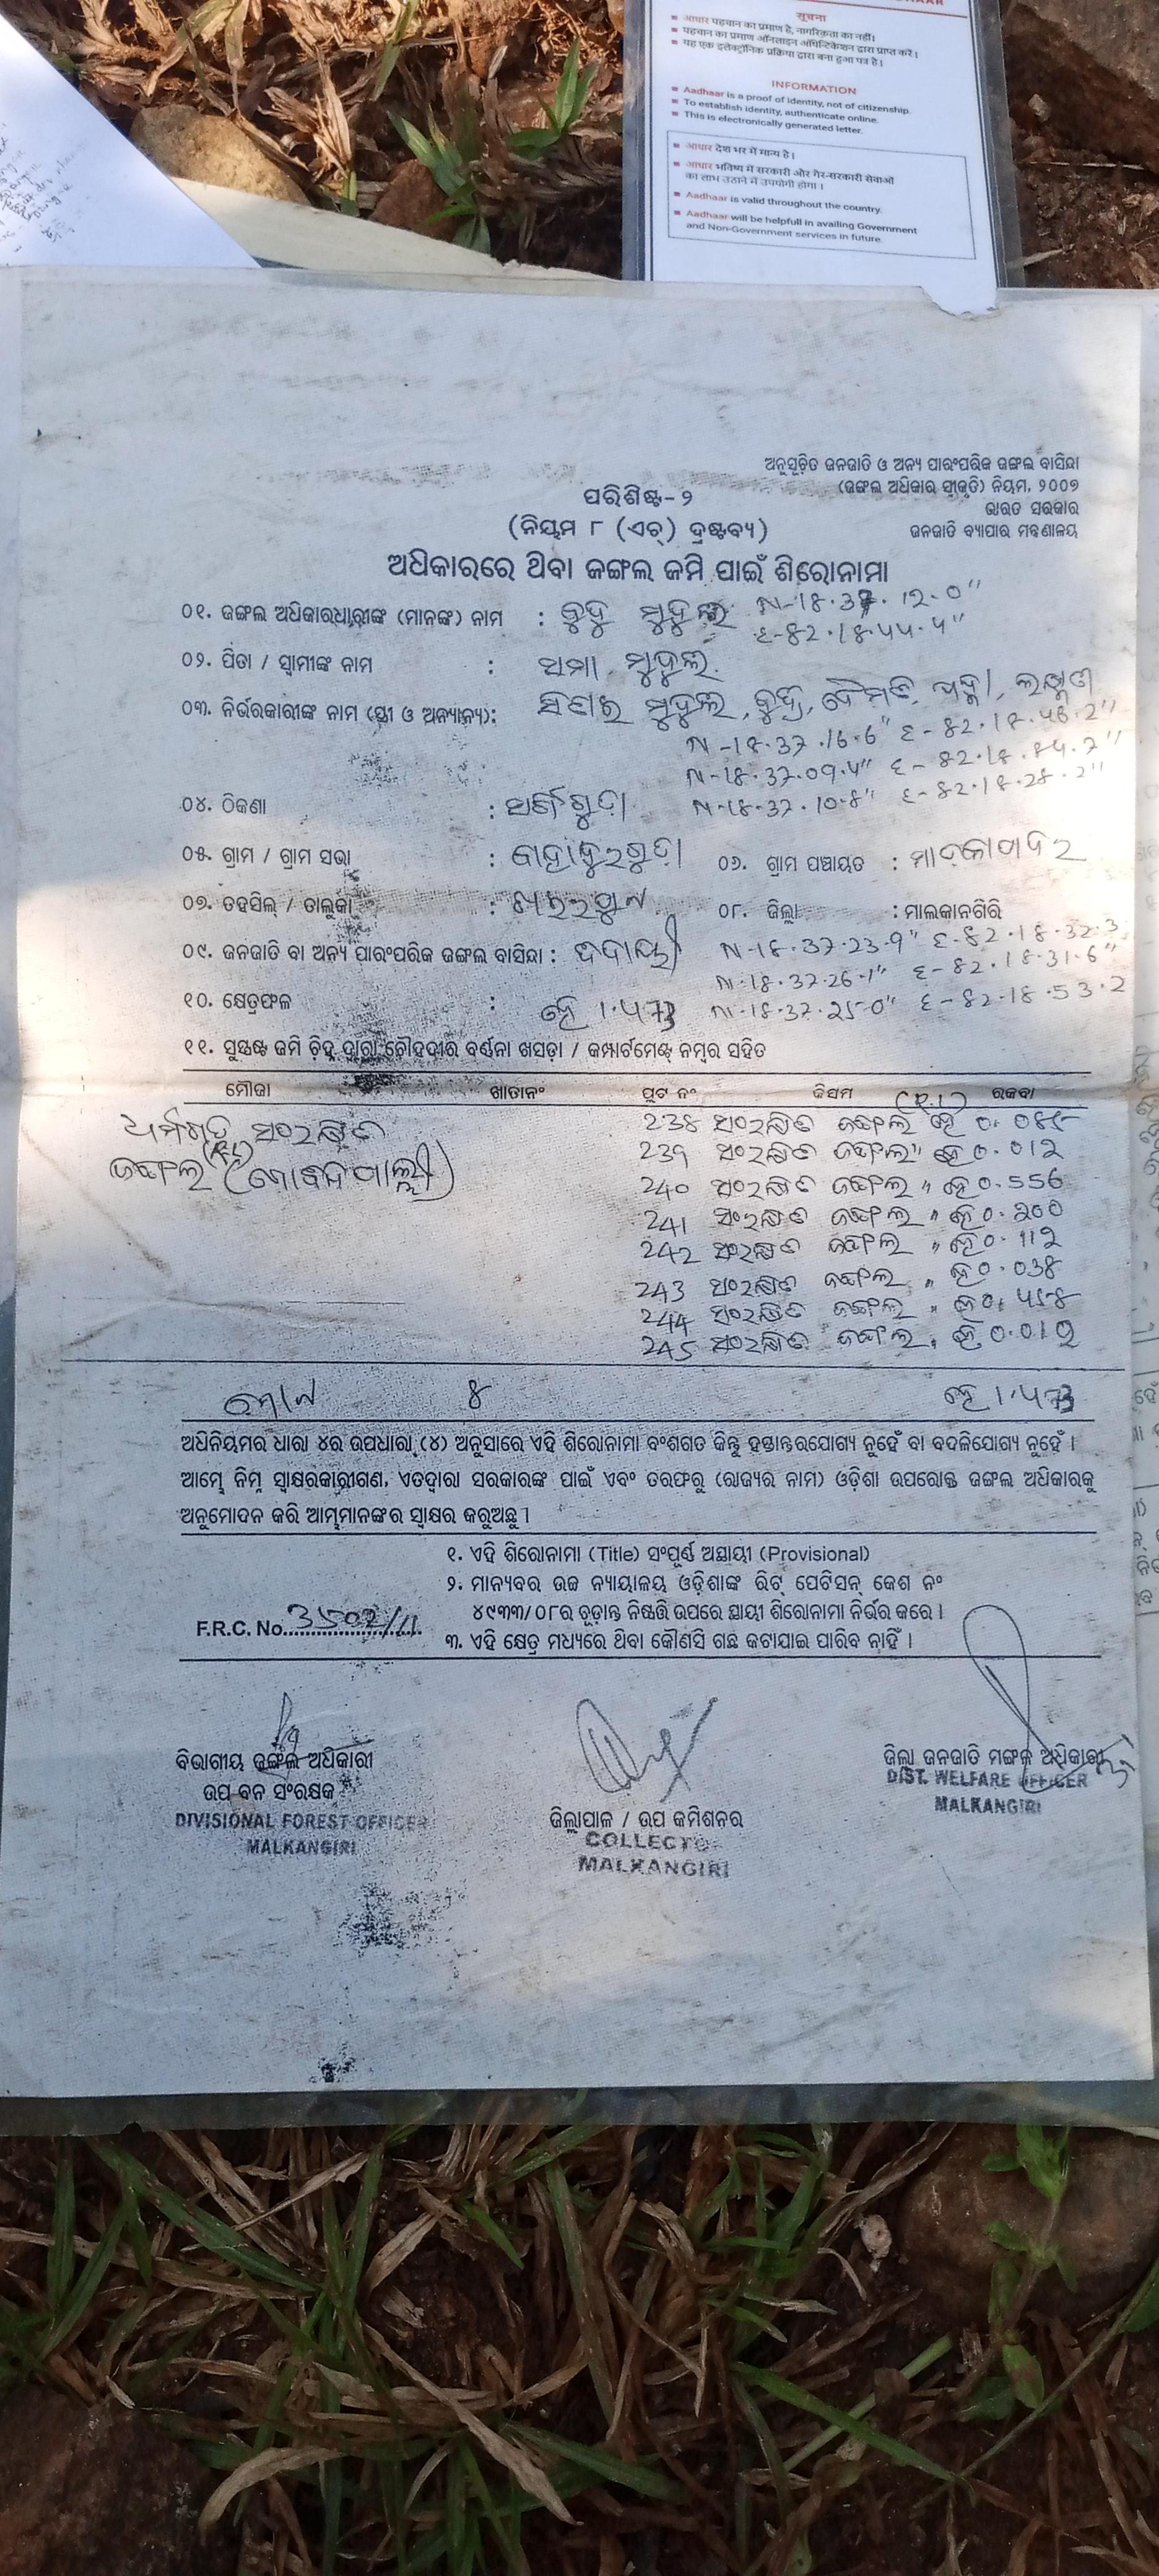 सूचना
आधार पहचान का प्रमाण है, नागरिकता का नहीं।
पहचान का प्रमाण ऑनलाइन ऑथेन्टिकेशन द्वारा प्राप्त करें।
यह एक इलेक्ट्रॉनिक प्रक्रिया द्वारा बना हुआ पत्र है।
INFORMATION
Aadhaar is a proof of identity, not of citizenship.
To establish identity, authenticate online.
This is electronically generated letter.
आधार देश भर में मान्य है।
आधार भविष्य में सरकारी और गैर-सरकारी सेवाओं
का लाभ उठाने में उपयोगी होगा।
Aadhaar is valid throughout the country.
Aadhaar will be helpfull in availing Government
and Non-Government services in future.
ଅନୁସୂଚିତ ଜନଜାତି ଓ ଅନ୍ୟ ପାରଂପରିକ ଜଙ୍ଗଲ ବାସିନ୍ଦା
(ଜଙ୍ଗଲ ଅଧିକାର ସ୍ୱୀକୃତି) ନିୟମ, ୨୦୦୭
ଭାରତ ସରକାର
ଜନଜାତି ବ୍ୟାପାର ମନ୍ତ୍ରଣାଳୟ
ପରିଶିଷ୍ଟ-୨
(ନିୟମ ୮ (ଏଚ୍) ଦ୍ରଷ୍ଟବ୍ୟ)
ଅଧିକାରରେ ଥିବା ଜଙ୍ଗଲ ଜମି ପାଇଁ ଶିରୋନାମା
୦୧. ଜଙ୍ଗଲ ଅଧିକାରଧାରୀଙ୍କ (ମାନଙ୍କ) ନାମ : ବୁଦୁ ମୁଦୁଲି
୦୨. ପିତା / ସ୍ୱାମୀଙ୍କ ନାମ : ସମା ମୁଦୁଲି
୦୩. ନିର୍ଭରକାରୀଙ୍କ ନାମ (ସ୍ତ୍ରୀ ଓ ଅନ୍ୟାନ୍ୟ):
N-18.37.16.6" E-82.18.46.2"
N-18.37.09.4"
N-18.37.10.8" E-82.18.28.2"
୦୪. ଠିକଣା :
୦୫. ଗ୍ରାମ / ଗ୍ରାମ ସଭା : ବାହାଦୁରଗୁଡା ୦୬. ଗ୍ରାମ ପଞ୍ଚାୟତ : ମାଦକାପଦର
୦୭. ତହସିଲ୍ / ତାଲୁକା : ଖଇରପୁଟ ୦୮. ଜିଲ୍ଲା : ମାଲକାନଗିରି
୦୯. ଜନଜାତି ବା ଅନ୍ୟ ପାରଂପରିକ ଜଙ୍ଗଲ ବାସିନ୍ଦା : N-18.37.23.9" E-82.18.32.3
N-18.37.26.1" E-82.18.31.6"
୧୦. କ୍ଷେତ୍ରଫଳ : ହେ 1.473 N-18.37.25.0" E-82.18.53.2
୧୧. ସୁସ୍ପଷ୍ଟ ଜମି ଚିହ୍ନ ଦ୍ୱାରା ଚୌହଦୀର ବର୍ଣ୍ଣନା ଖସଡ଼ା / କମ୍ପାର୍ଟମେଣ୍ଟ ନମ୍ବର ସହିତ
ମୌଜା ଖାତାନଂ ପ୍ଲଟ ନଂ କିସମ ରକବା
ସଂରକ୍ଷିତ
ଜଙ୍ଗଲ
238 ସଂରକ୍ଷିତ ଜଙ୍ଗଲ ହେ
239 ସଂରକ୍ଷିତ ଜଙ୍ଗଲ " ହେ 0.012
240 ସଂରକ୍ଷିତ ଜଙ୍ଗଲ " ହେ 0.556
241 ସଂରକ୍ଷିତ ଜଙ୍ଗଲ " ହେ 0.200
242 ସଂରକ୍ଷିତ ଜଙ୍ଗଲ " ହେ 0.112
243 ସଂରକ୍ଷିତ ଜଙ୍ଗଲ " ହେ 0.038
244 ସଂରକ୍ଷିତ ଜଙ୍ଗଲ " ହେ 0.458
245 ସଂରକ୍ଷିତ ଜଙ୍ଗଲ " ହେ
ମୋଟ 8 ହେ 1.473
ଅଧିନିୟମର ଧାରା ୪ର ଉପଧାରା (୪) ଅନୁସାରେ ଏହି ଶିରୋନାମା ବଂଶଗତ କିନ୍ତୁ ହସ୍ତାନ୍ତରଯୋଗ୍ୟ ନୁହେଁ ବା ବଦଳିଯୋଗ୍ୟ ନୁହେଁ ।
ଆମ୍ଭେ ନିମ୍ନ ସ୍ୱାକ୍ଷରକାରୀଗଣ, ଏତଦ୍ୱାରା ସରକାରଙ୍କ ପାଇଁ ଏବଂ ତରଫରୁ (ରାଜ୍ୟର ନାମ) ଓଡ଼ିଶା ଉପରୋକ୍ତ ଜଙ୍ଗଲ ଅଧିକାରକୁ
ଅନୁମୋଦନ କରି ଆମ୍ଭମାନଙ୍କର ସ୍ୱାକ୍ଷର କରୁଅଛୁ ।
୧. ଏହି ଶିରୋନାମା (Title) ସଂପୂର୍ଣ୍ଣ ଅସ୍ଥାୟୀ (Provisional)
୨. ମାନ୍ୟବର ଉଚ୍ଚ ନ୍ୟାୟାଳୟ ଓଡ଼ିଶାଙ୍କ ରିଟ୍ ପେଟିସନ୍ କେଶ ନଂ
୪୯୩୩/୦୮ର ଚୂଡ଼ାନ୍ତ ନିଷ୍ପତ୍ତି ଉପରେ ସ୍ଥାୟୀ ଶିରୋନାମା ନିର୍ଭର କରେ ।
F.R.C. No. 3502/11
୩. ଏହି କ୍ଷେତ୍ର ମଧ୍ୟରେ ଥିବା କୌଣସି ଗଛ କଟାଯାଇ ପାରିବ ନାହିଁ ।
ବିଭାଗୀୟ ଜଙ୍ଗଲ ଅଧିକାରୀ
ଉପ ବନ ସଂରକ୍ଷକ
DIVISIONAL FOREST OFFICER
MALKANGIRI
ଜିଲ୍ଲାପାଳ / ଉପ କମିଶନର
COLLECTO
MALKANGIRI
ଜିଲ୍ଲା ଜନଜାତି ମଙ୍ଗଳ ଅଧିକାରୀ
DIST. WELFARE OFFICER
MALKANGIRI